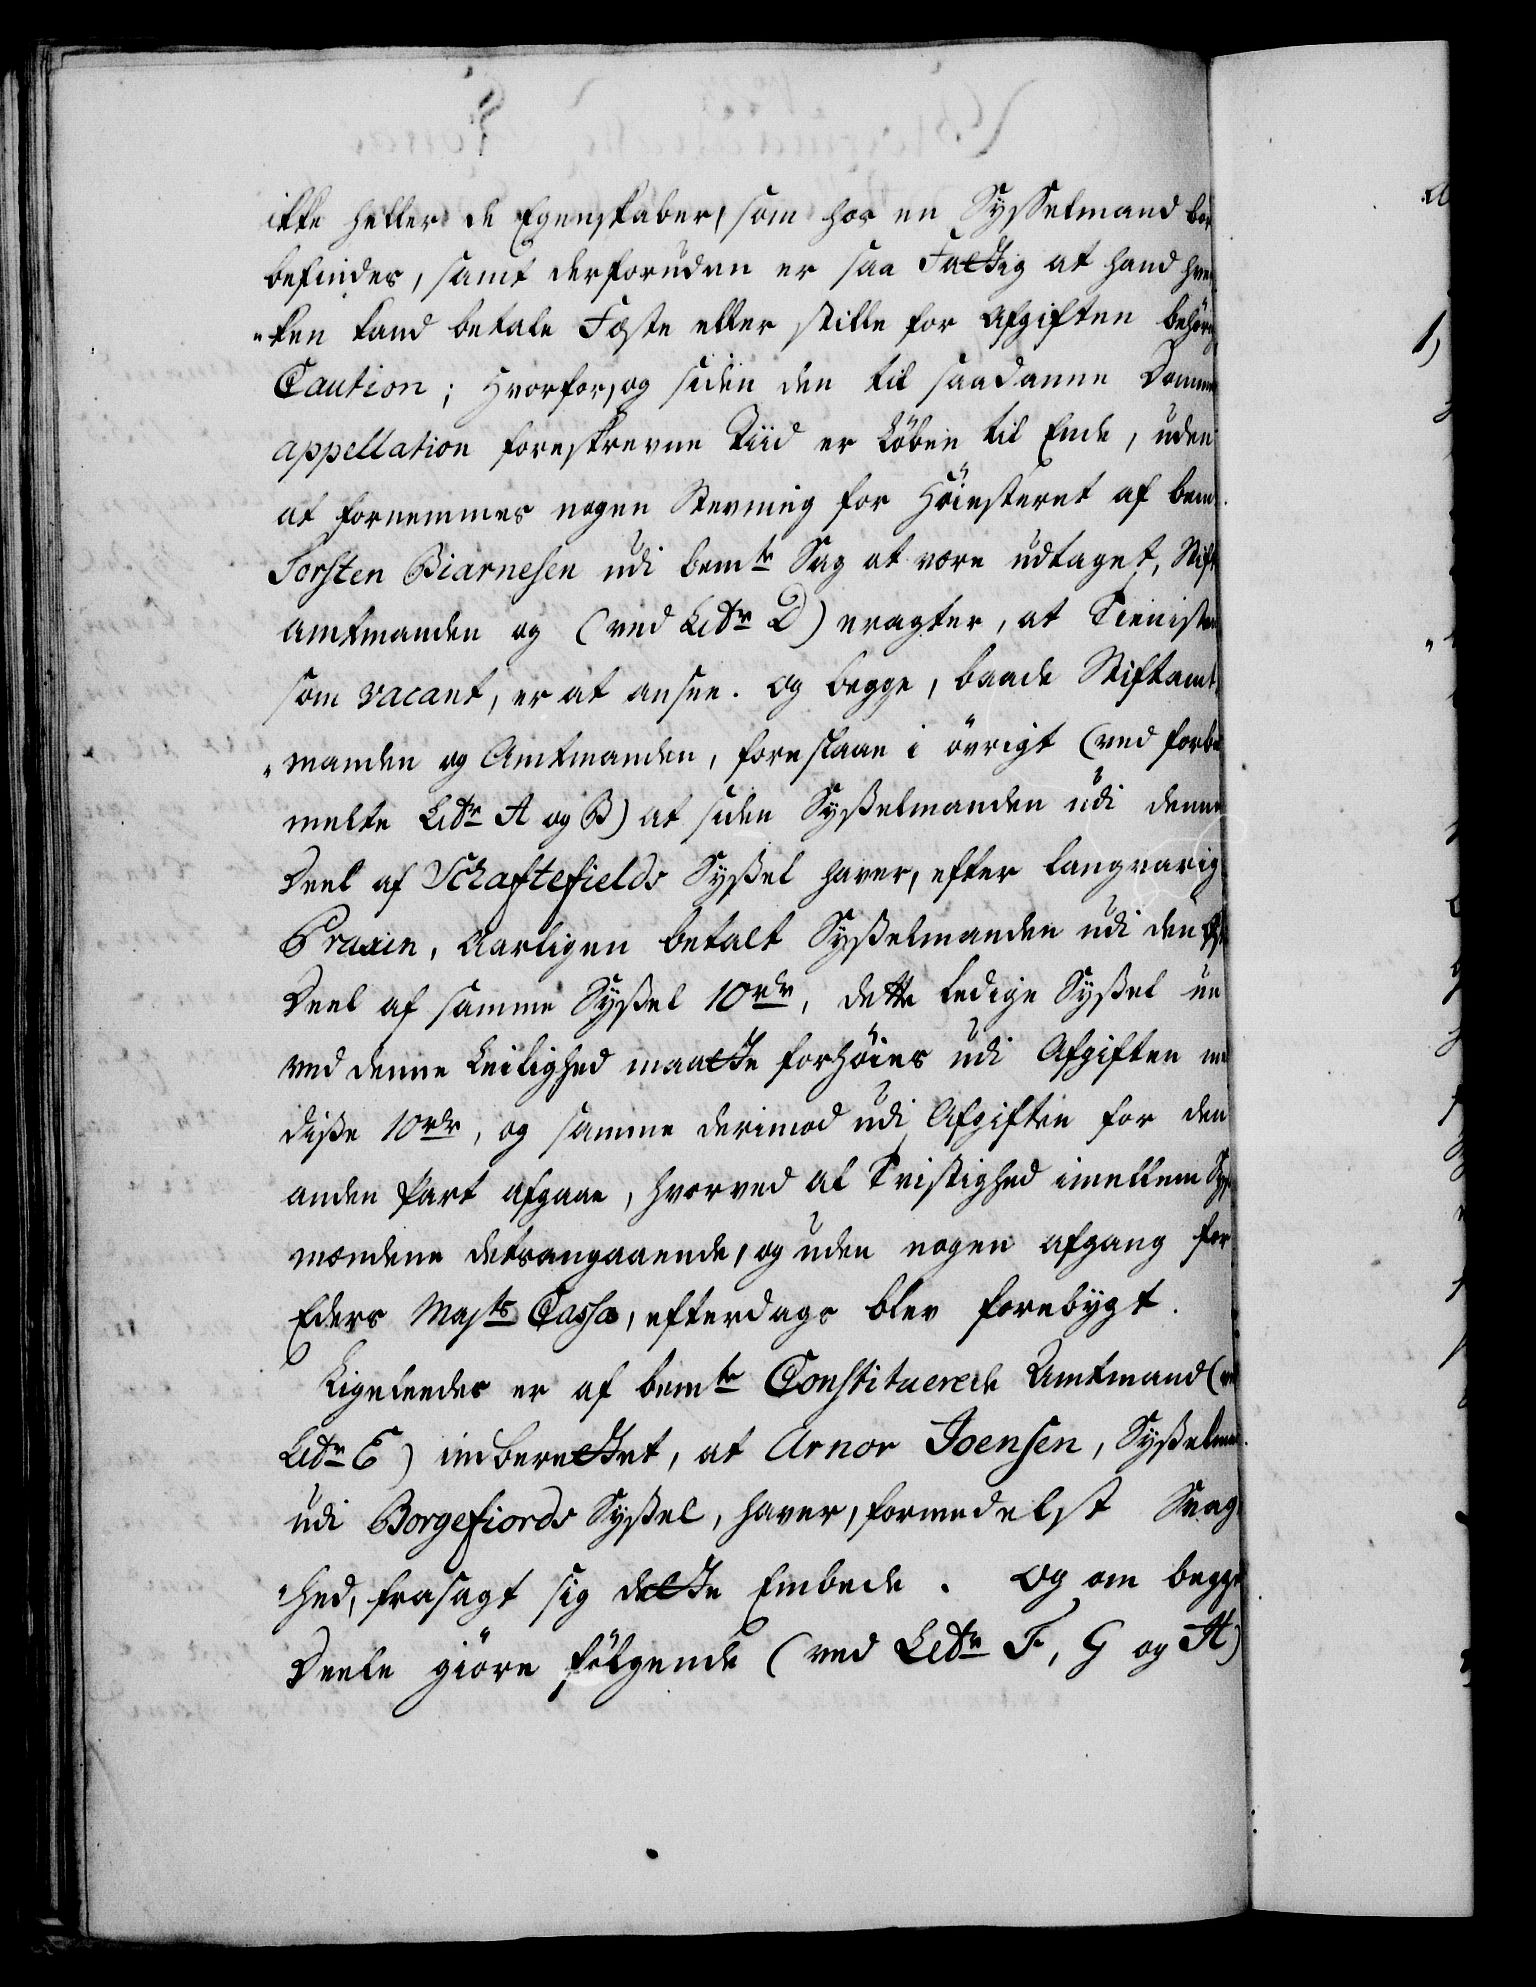 ikke heller de Egenskaber, som hos en Sysselmand bør
befindes, samt derforuden er saa Fattig at hand hver-
"ken kand betale Fæste eller stille for Afgiften behörig
Caution; Hvorfor, og siden den til saadanne Dommes
appellation foreskrevne Tiid er Löben til Ende, uden
at fornemmes nogen Stevning for Höiesteret af bem.
Torsten Biarnesen udi bemte Sag at være udtaget, Stift
amtmanden og (ved Litr D) eragter, at Tienisten
som vacant, er at ansee. Og begge, baade Stiftamt,
"manden og Amtmanden, foreslaae i övrigt (ved forbe
melte Litr A og B) at siden Sysselmanden udi denne
Deel af Schaftefields Syssel haver, efter langvarig
Praxin, Aarligen betalt Sysselmanden udi den
Deel af samme Syssel 10 rdr, dette ledige Syssel nu
ved denne Leilighed maatte forhöies udi Afgiften med
disse 10 rdr, og samme derimod udi Afgiften for den
anden Part afgaae, hvorved al Tvistighed imellem Syssel
mændene detsangaaende, og uden nogen afgang for
Eders Majts Cassa, efterdags blev forebygt.
Ligeleedes er af bemte Constituerede Amtmand (ved
Litr E) indberettet, at Arnor Joensen, Sysselmand
udi Borgefiords Syssel, haver, formedelst Svag
"hed, frasagt sig dette Embede. Og om begge
Deele giöre fölgende (ved Litr F, G og H)